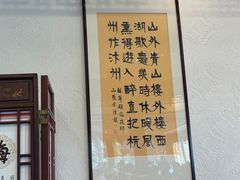 山外青山樓外樓西
湖歌舞幾時休暖風
熏得遊人醉直把杭
州作汴州